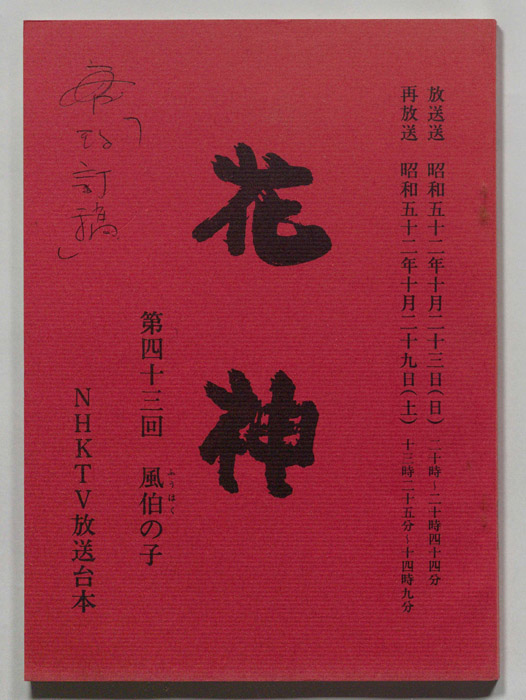 放送送 昭和五十二年十月二十三日(日) 二十時~二十時四十四分
再放送 昭和五十二年十月二十九日(土) 十三時二十五分~十四時九分
花神
第四十三回 風伯の子
ふうはく
NHKTV放送台本
訂稿」